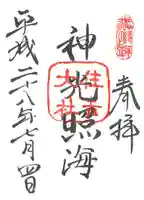 奉拝
神光照海
住吉
大社
平成二十八年七月四日